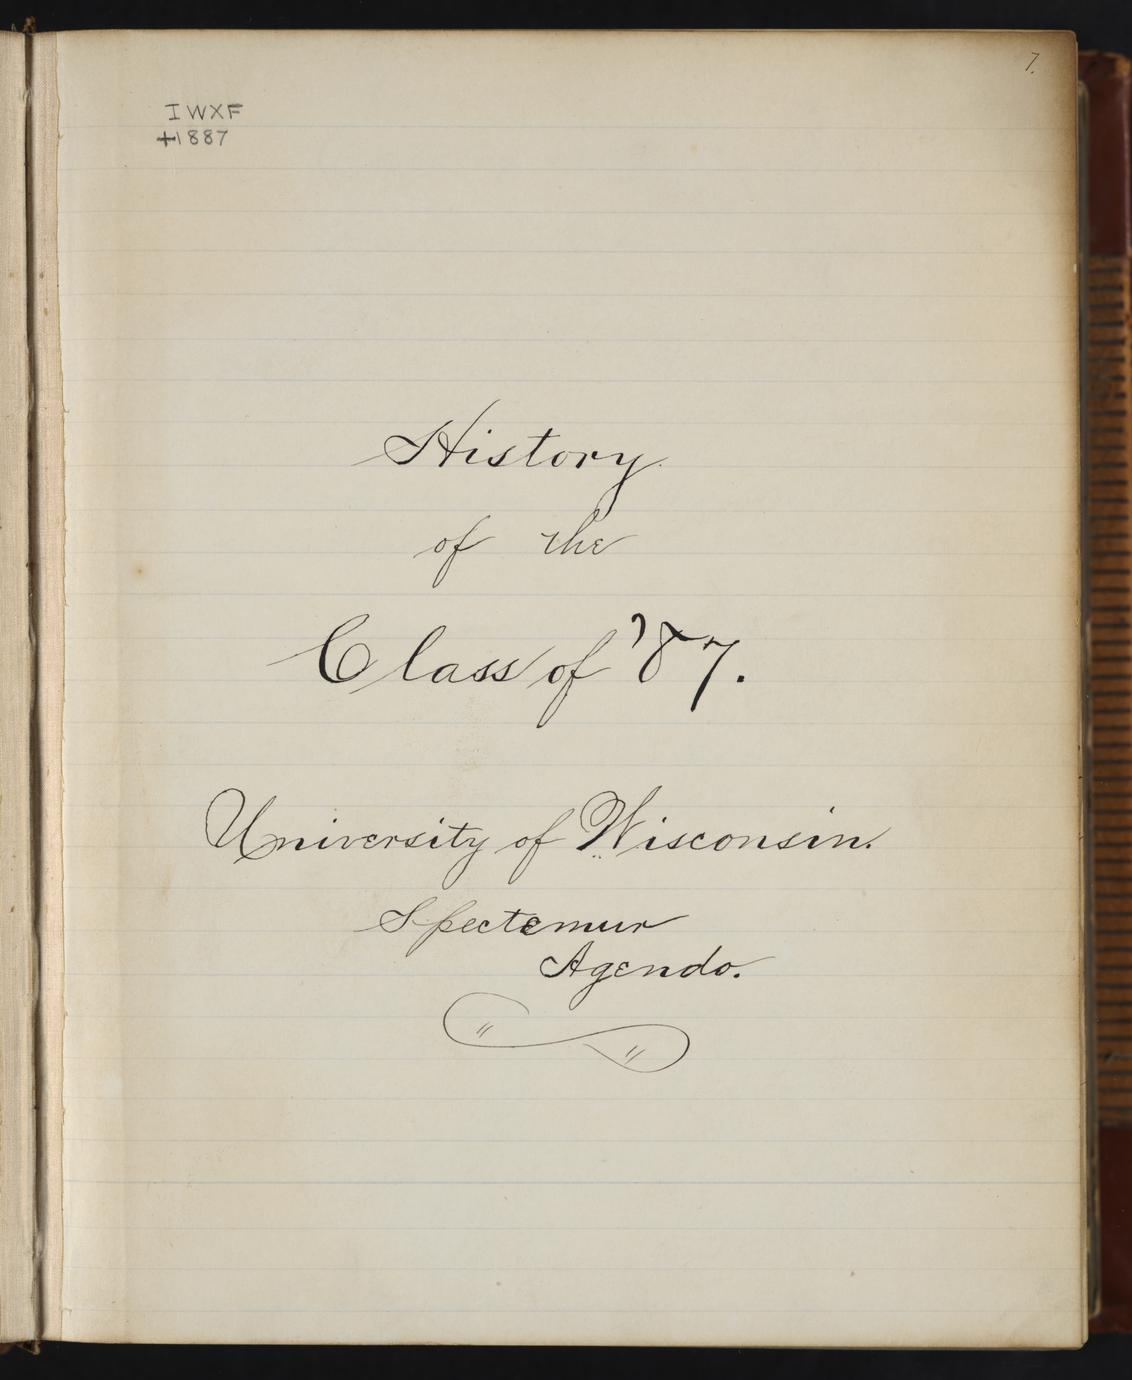 7.
IWXF
+1887
History
of the
Class of '87.
University of Wisconsin.
Spectemur
Agendo.